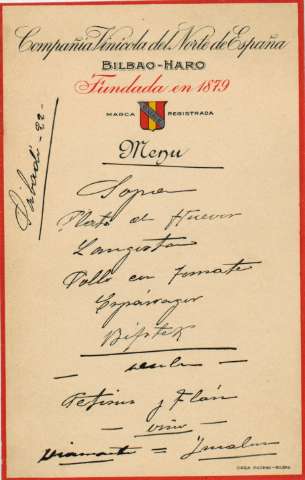 Compañia Vinicola del Norte de España
BILBAO-HARO
Fundada en 1879
MARCA REGISTRADA
Menu
Sábado-22-
Sopa
Plato de Huevos
Langosta
Pollo en tomate
Espárragos
Biftek
Petisus y Flán
vino
Diamante =